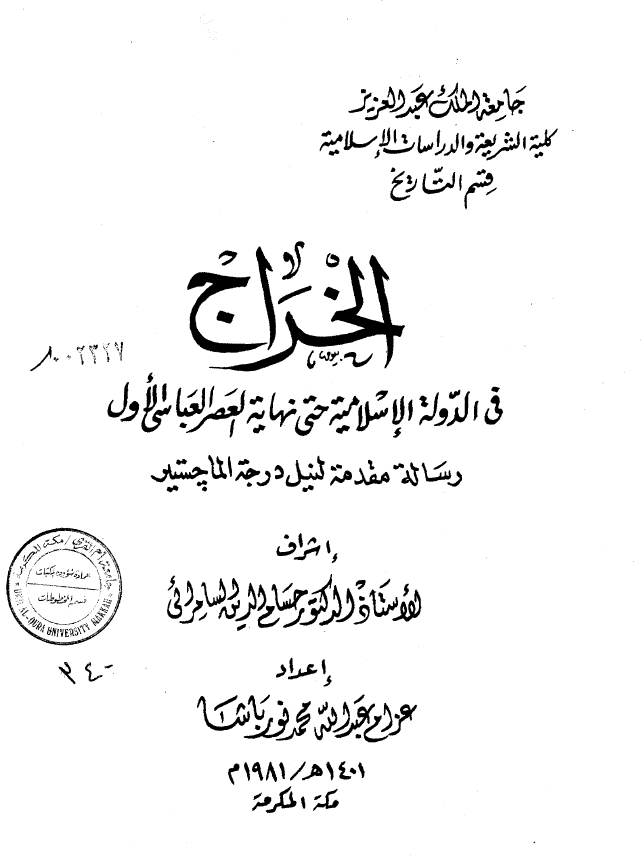 جامعة الملك عبد العزيز
كلية الشريعة والدراسات الإسلامية
قسم التاريخ
الخراج
٨٠٠٢٣٢٧
في الدولة الإسلامية حتى نهاية العصر العباسي الأول
رسالة مقدمة لنيل درجة الماجستير
إشراف
الأستاذ الدكتور حسام الدين السامرائي
جامعة أم القرى / مكة المكرمة
عمادة شؤون المكتبات
قسم المخطوطات
UMM AL-QURA UNIVERSITY MAKKAH
٣٤٠
إعداد
عزام عبد الله محمد نور باشا
١٤٠١هـ/١٩٨١م
مكة المكرمة